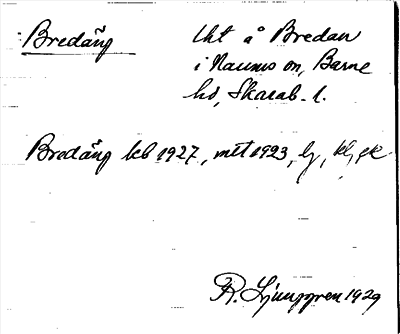 Bredäng
Uht å Bredan
i Naums sn, Barne
hd, Skarab. l.
Bredäng kb 1927, mtl 1923, lj, kl, ek
R. Ljunggren 1929